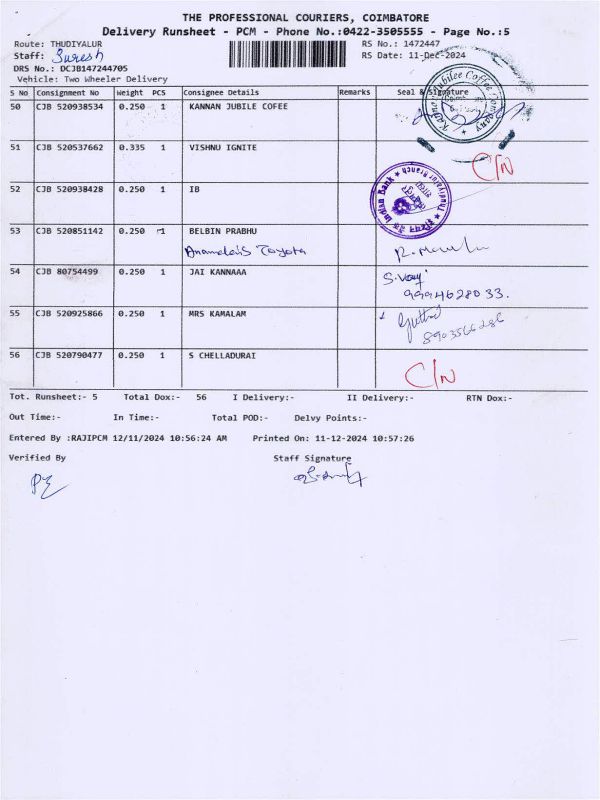 THE PROFESSIONAL COURIERS, COIMBATORE
Delivery Runsheet - PCM - Phone No.:0422-3505555 - Page No.:5
Route: THUDIYALUR RS No.: 1472447
Staff: Suresh RS Date: 11-Dec-2024
DRS No.: DCJB147244705
Vehicle: Two Wheeler Delivery
S No Consignment No Weight PCS Consignee Details Remarks Seal & Signature
50 CJB 520938534 0.250 1 KANNAN JUBILE COFEE
51 CJB 520537662 0.335 1 VISHNU IGNITE C/N
52 CJB 520938428 0.250 1 IB
Indian Bank
53 CJB 520851142 0.250 1 BELBIN PRABHU
Anamalais Toyota
54 CJB 80754499 0.250 1 JAI KANNAAA
9994628033.
55 CJB 520925866 0.250 1 MRS KAMALAM
56 CJB 520790477 0.250 1 S CHELLADURAI
C/N
Tot. Runsheet:- 5 Total Dox:- 56 I Delivery:- II Delivery:- RTN Dox:-
Out Time:- In Time:- Total POD:- Delvy Points:-
Entered By :RAJIPCM 12/11/2024 10:56:24 AM Printed On: 11-12-2024 10:57:26
Verified By Staff Signature